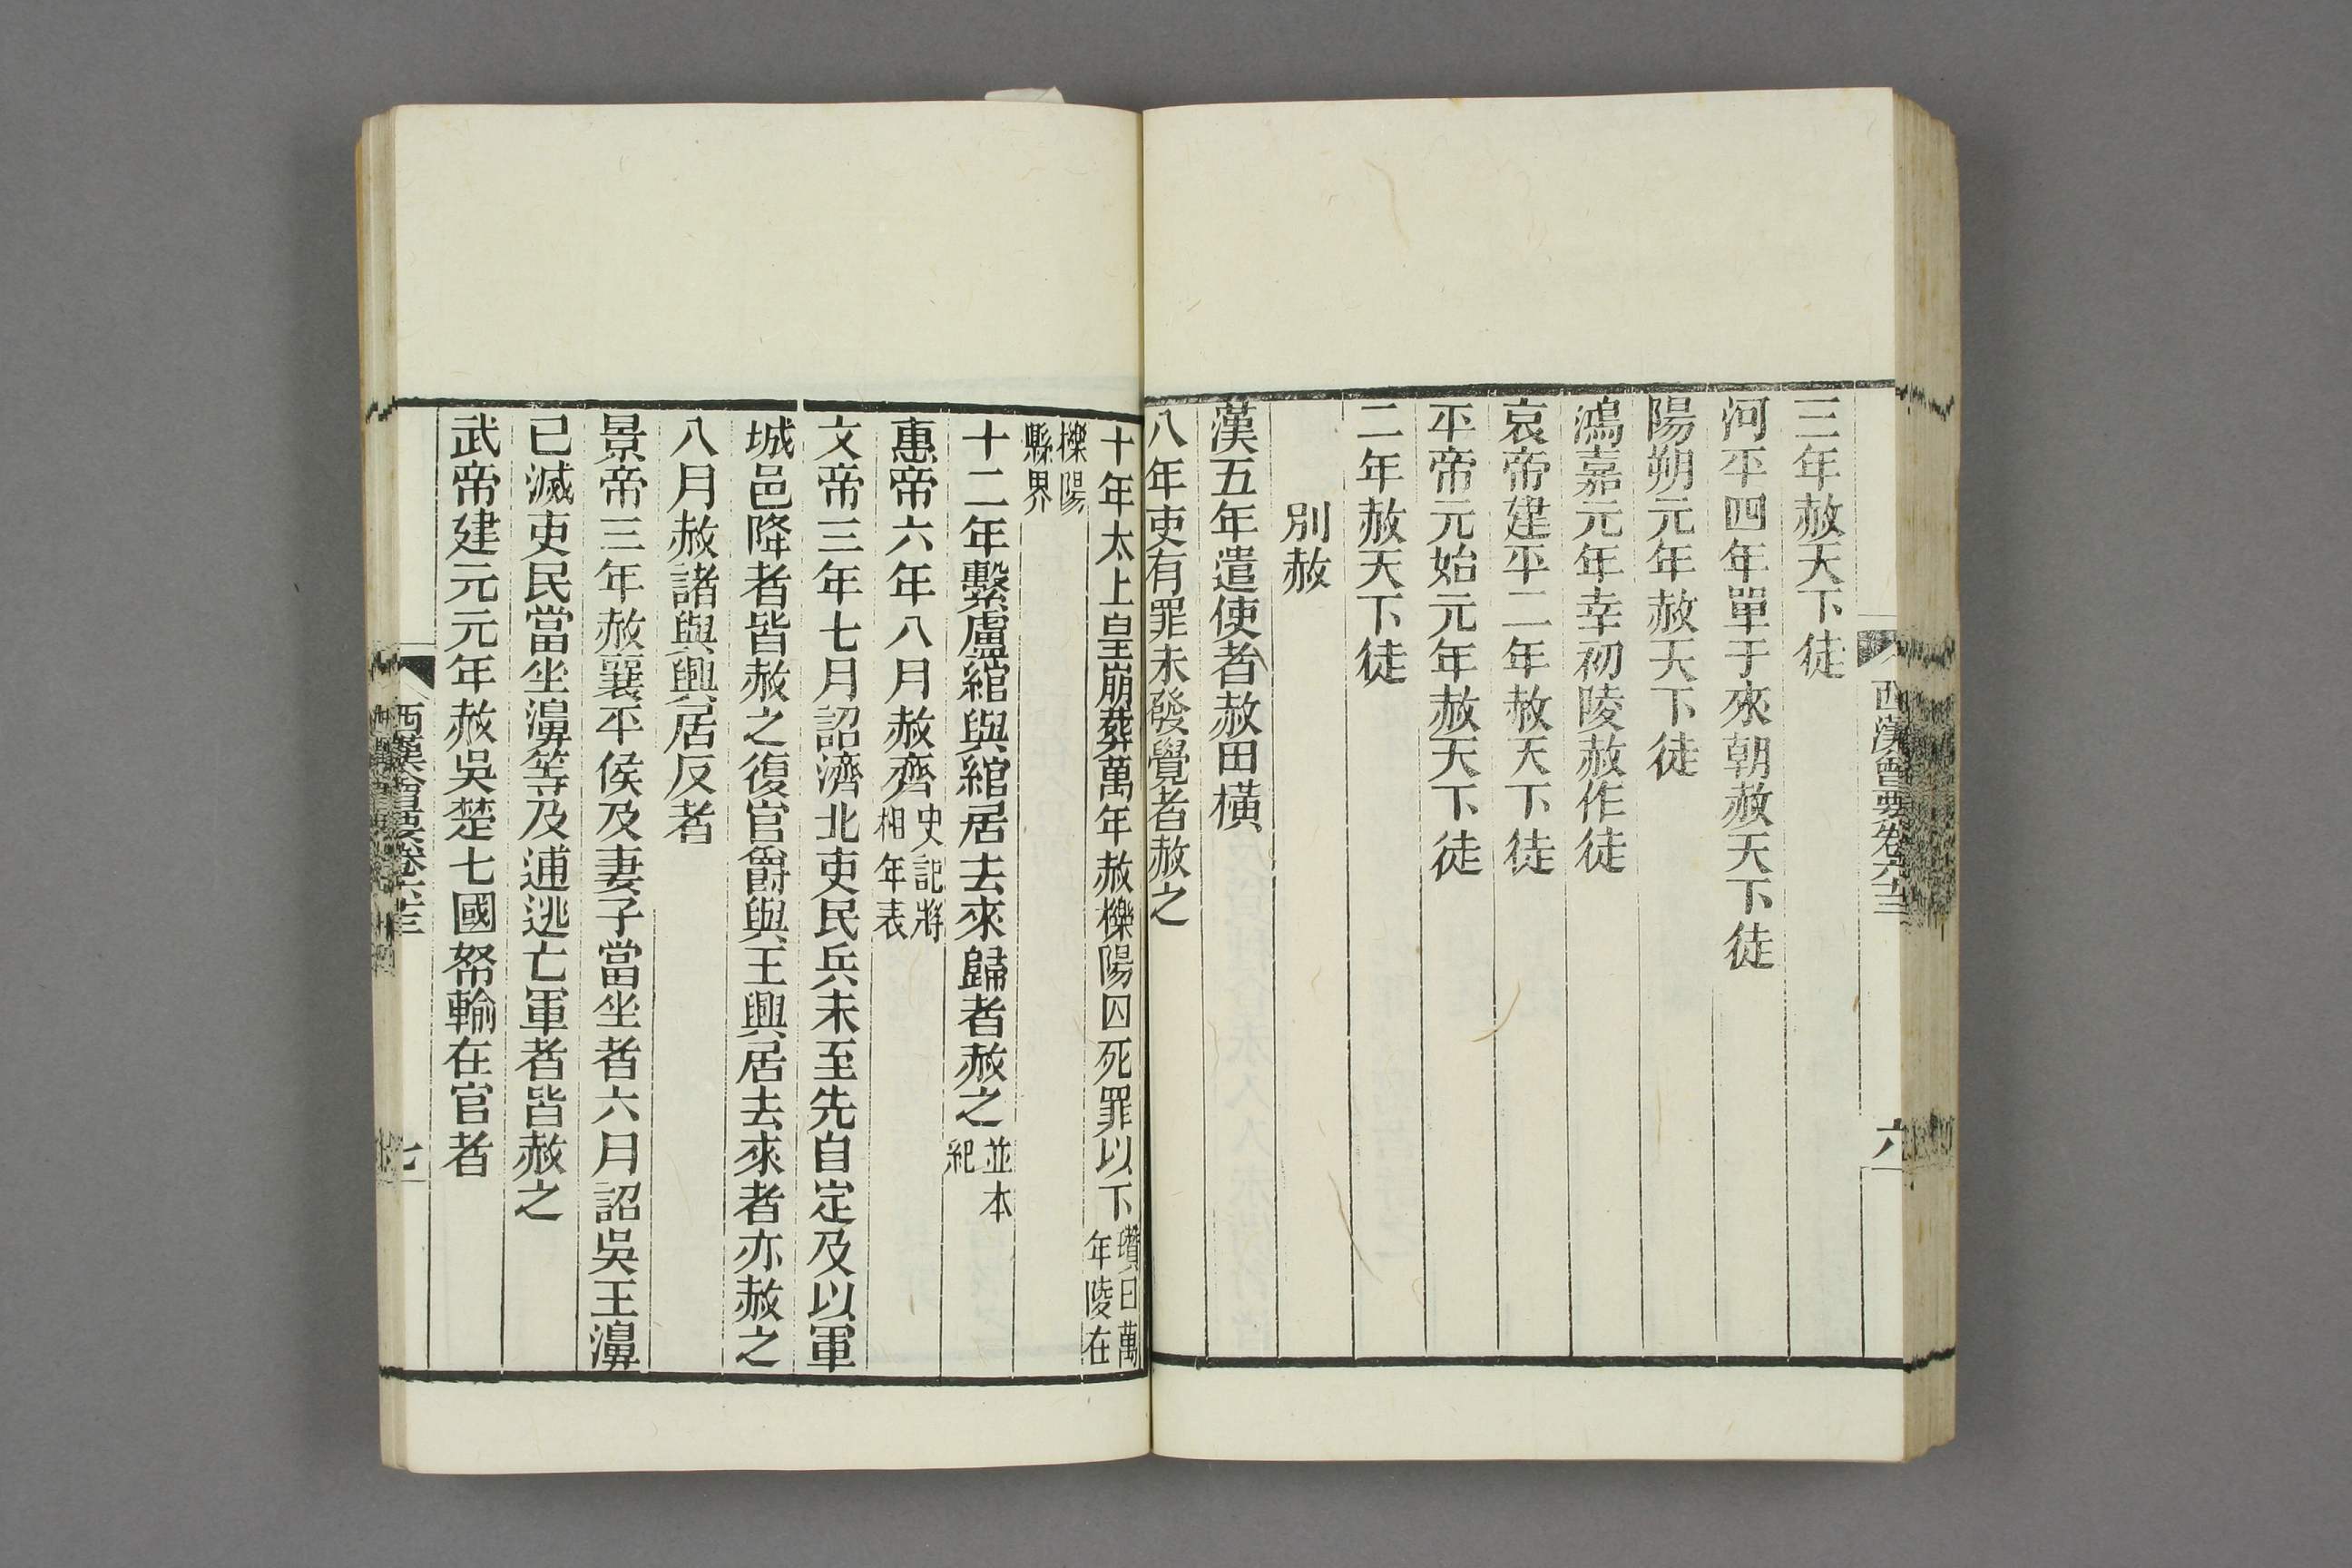 西漢會要卷六十三
六
三年赦天下徒
河平四年單于來朝赦天下徒
陽朔元年赦天下徒
鴻嘉元年幸初陵赦作徒
哀帝建平二年赦天下徒
平帝元始元年赦天下徒
二年赦天下徒
別赦
漢五年遣使者赦田橫
八年吏有罪未發覺者赦之
十年太上皇崩葬萬年赦櫟陽囚死罪以下瓚曰萬年陵在
櫟陽縣界
十二年繫盧綰與綰居去來歸者赦之並本紀
惠帝六年八月赦齊史記將相年表
文帝三年七月詔濟北吏民兵未至先自定及以軍
城邑降者皆赦之復官爵與王興居去來者亦赦之
八月赦諸與興居反者
景帝三年赦襄平侯及妻子當坐者六月詔吳王濞
已滅吏民當坐濞等及逋逃亡軍者皆赦之
武帝建元元年赦吳楚七國帑輸在官者
西漢會要卷六十三
七